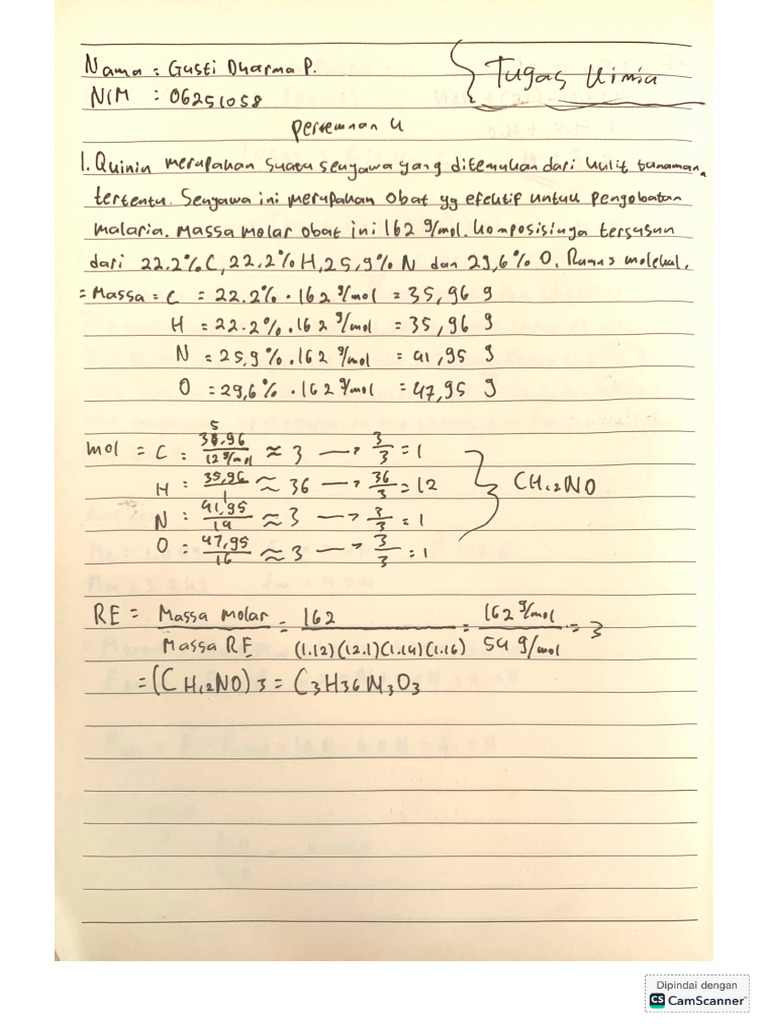 Nama : Gusti Dharma P.
NIM : 06251058
Tugas Kimia
Pertemuan 4
1. Quinin merupakan suatu senyawa yang ditemukan dari kulit tanaman
tertentu. Senyawa ini merupakan obat yg efektif untuk pengobatan
malaria. Massa molar obat ini 162 g/mol. Komposisinya tersusun
dari 22.2% C, 22,2% H, 25,9% N dan 29,6% O. Rumus molekul.
= Massa = C = 22.2% . 162 g/mol = 35,96 g
H = 22.2% . 162 g/mol = 35,96 g
N = 25,9% . 162 g/mol = 41,95 g
O = 29,6% . 162 g/mol = 47,95 g
mol = C = 35,96/12 g/mol ≈ 3 → 3/3 = 1
H = 35,96/1 ≈ 36 → 36/3 = 12
N = 41,95/14 ≈ 3 → 3/3 = 1
O = 47,95/16 ≈ 3 → 3/3 = 1
CH12NO
RE = Massa molar/Massa RE = 162/(1.12)(12.1)(1.14)(1.16) = 162 g/mol/54 g/mol = 3
= (CH12NO)3 = C3H36N3O3
Dipindai dengan
CS CamScanner